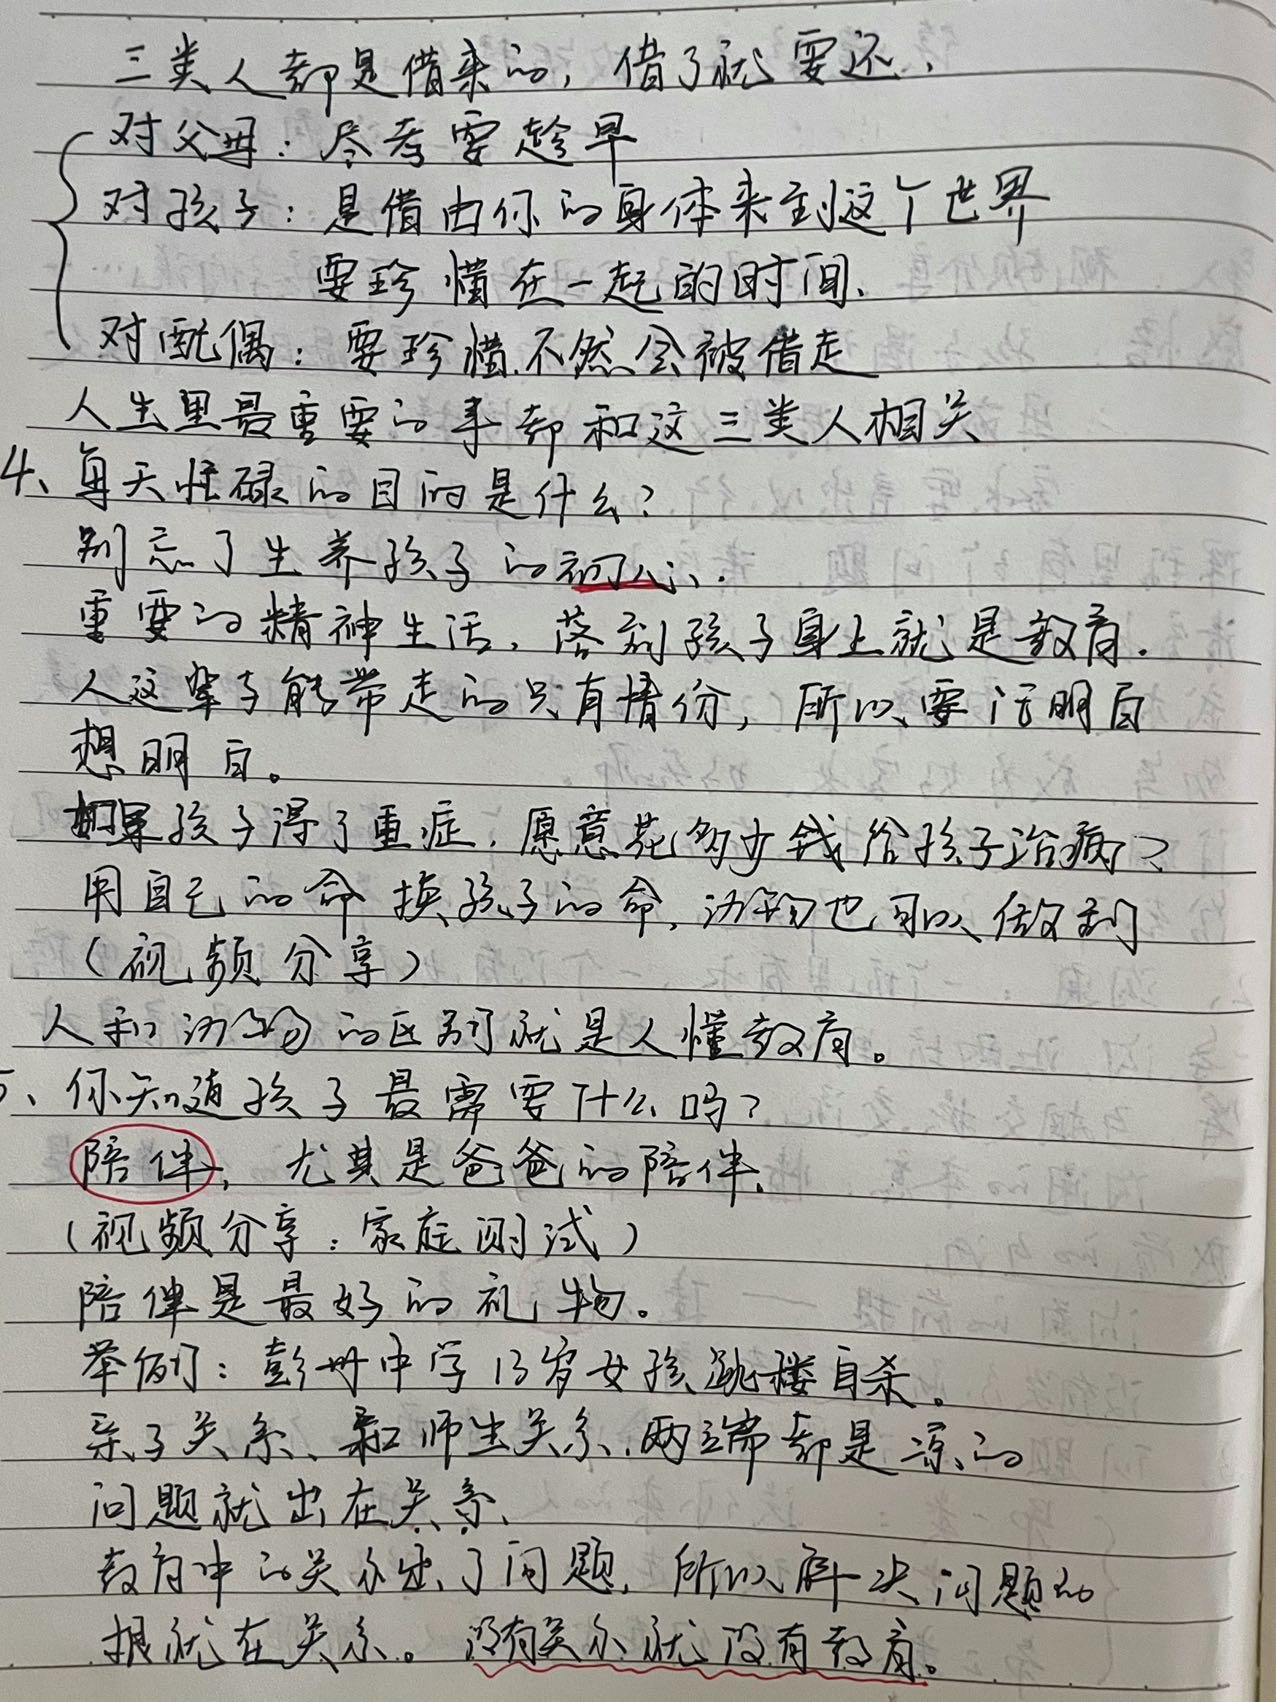 三类人都是借来的，借了就要还，
对父母：尽孝要趁早
对孩子：是借由你的身体来到这个世界
要珍惜在一起的时间、
对配偶：要珍惜.不然会被借走
人生里最重要的事都和这三类人相关
4、每天忙碌的目的是什么？
别忘了生养孩子的初心.
重要的精神生活，落到孩子身上就是教育.
人这辈子能带走的只有情份，所以要活明白
想明白。
如果孩子得了重症，愿意花多少钱给孩子治病？
用自己的命换孩子的命，动物也可以做到
（视频分享）
人和动物的区别就是人懂教育。
5、你知道孩子最需要什么吗？
陪伴，尤其是爸爸的陪伴、
（视频分享：家庭测试）
陪伴是最好的礼物。
举例：彭州中学13岁女孩跳楼自杀。
亲子关系、和师生关系，两端都是凉的
问题就出在关系、
教育中的关系出了问题，所以解决问题的
根就在关系。没有关系就没有教育。